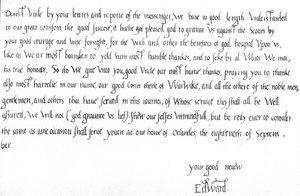 Derest Uncle by your letters and reporte of the messenger, we have at good length understanded
to our great comfort, the good succese, it hathe god pleased god to graunt us against the Scottes by
your good courage and wise forsight, for the wich and other the benefites of god heaped upon us,
like as we ar most bounden to yeld him most humble thankes, and to seke bi al waies we mai,
his true honour. So do we give unto you, good Uncle our most hartie thankes, praying you to thanke
also most hartelie in our name our good Cosin therle of Warwike, and all the othere of the noble men,
gentlemen, and others that have served in this journei, of whose service they shall all be well
assured, we will not (god graunte us lief) shew our selfes unmindfull, but be redy ever to consider
the same as anie occasion shall serve. Yeven at our house of Otlandes, the eighteenth of Septem-
ber.
your good neuew
Edward